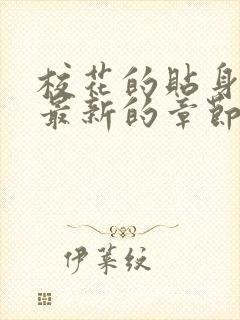 校花的貼身
最新的章節
伊萊紋